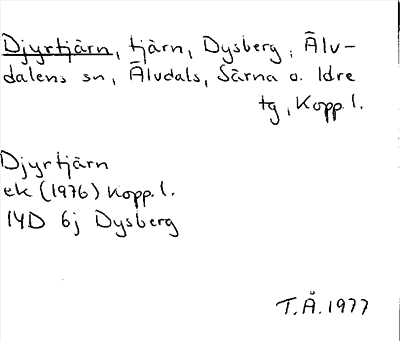 Djyrtjärn, tjärn, Dysberg, Älv-
dalens sn, Älvdals, Särna o. Idre
tg, Kopp. l.
Djyrtjärn
ek (1976) Kopp. l.
14D 6j Dysberg
T.Å. 1977